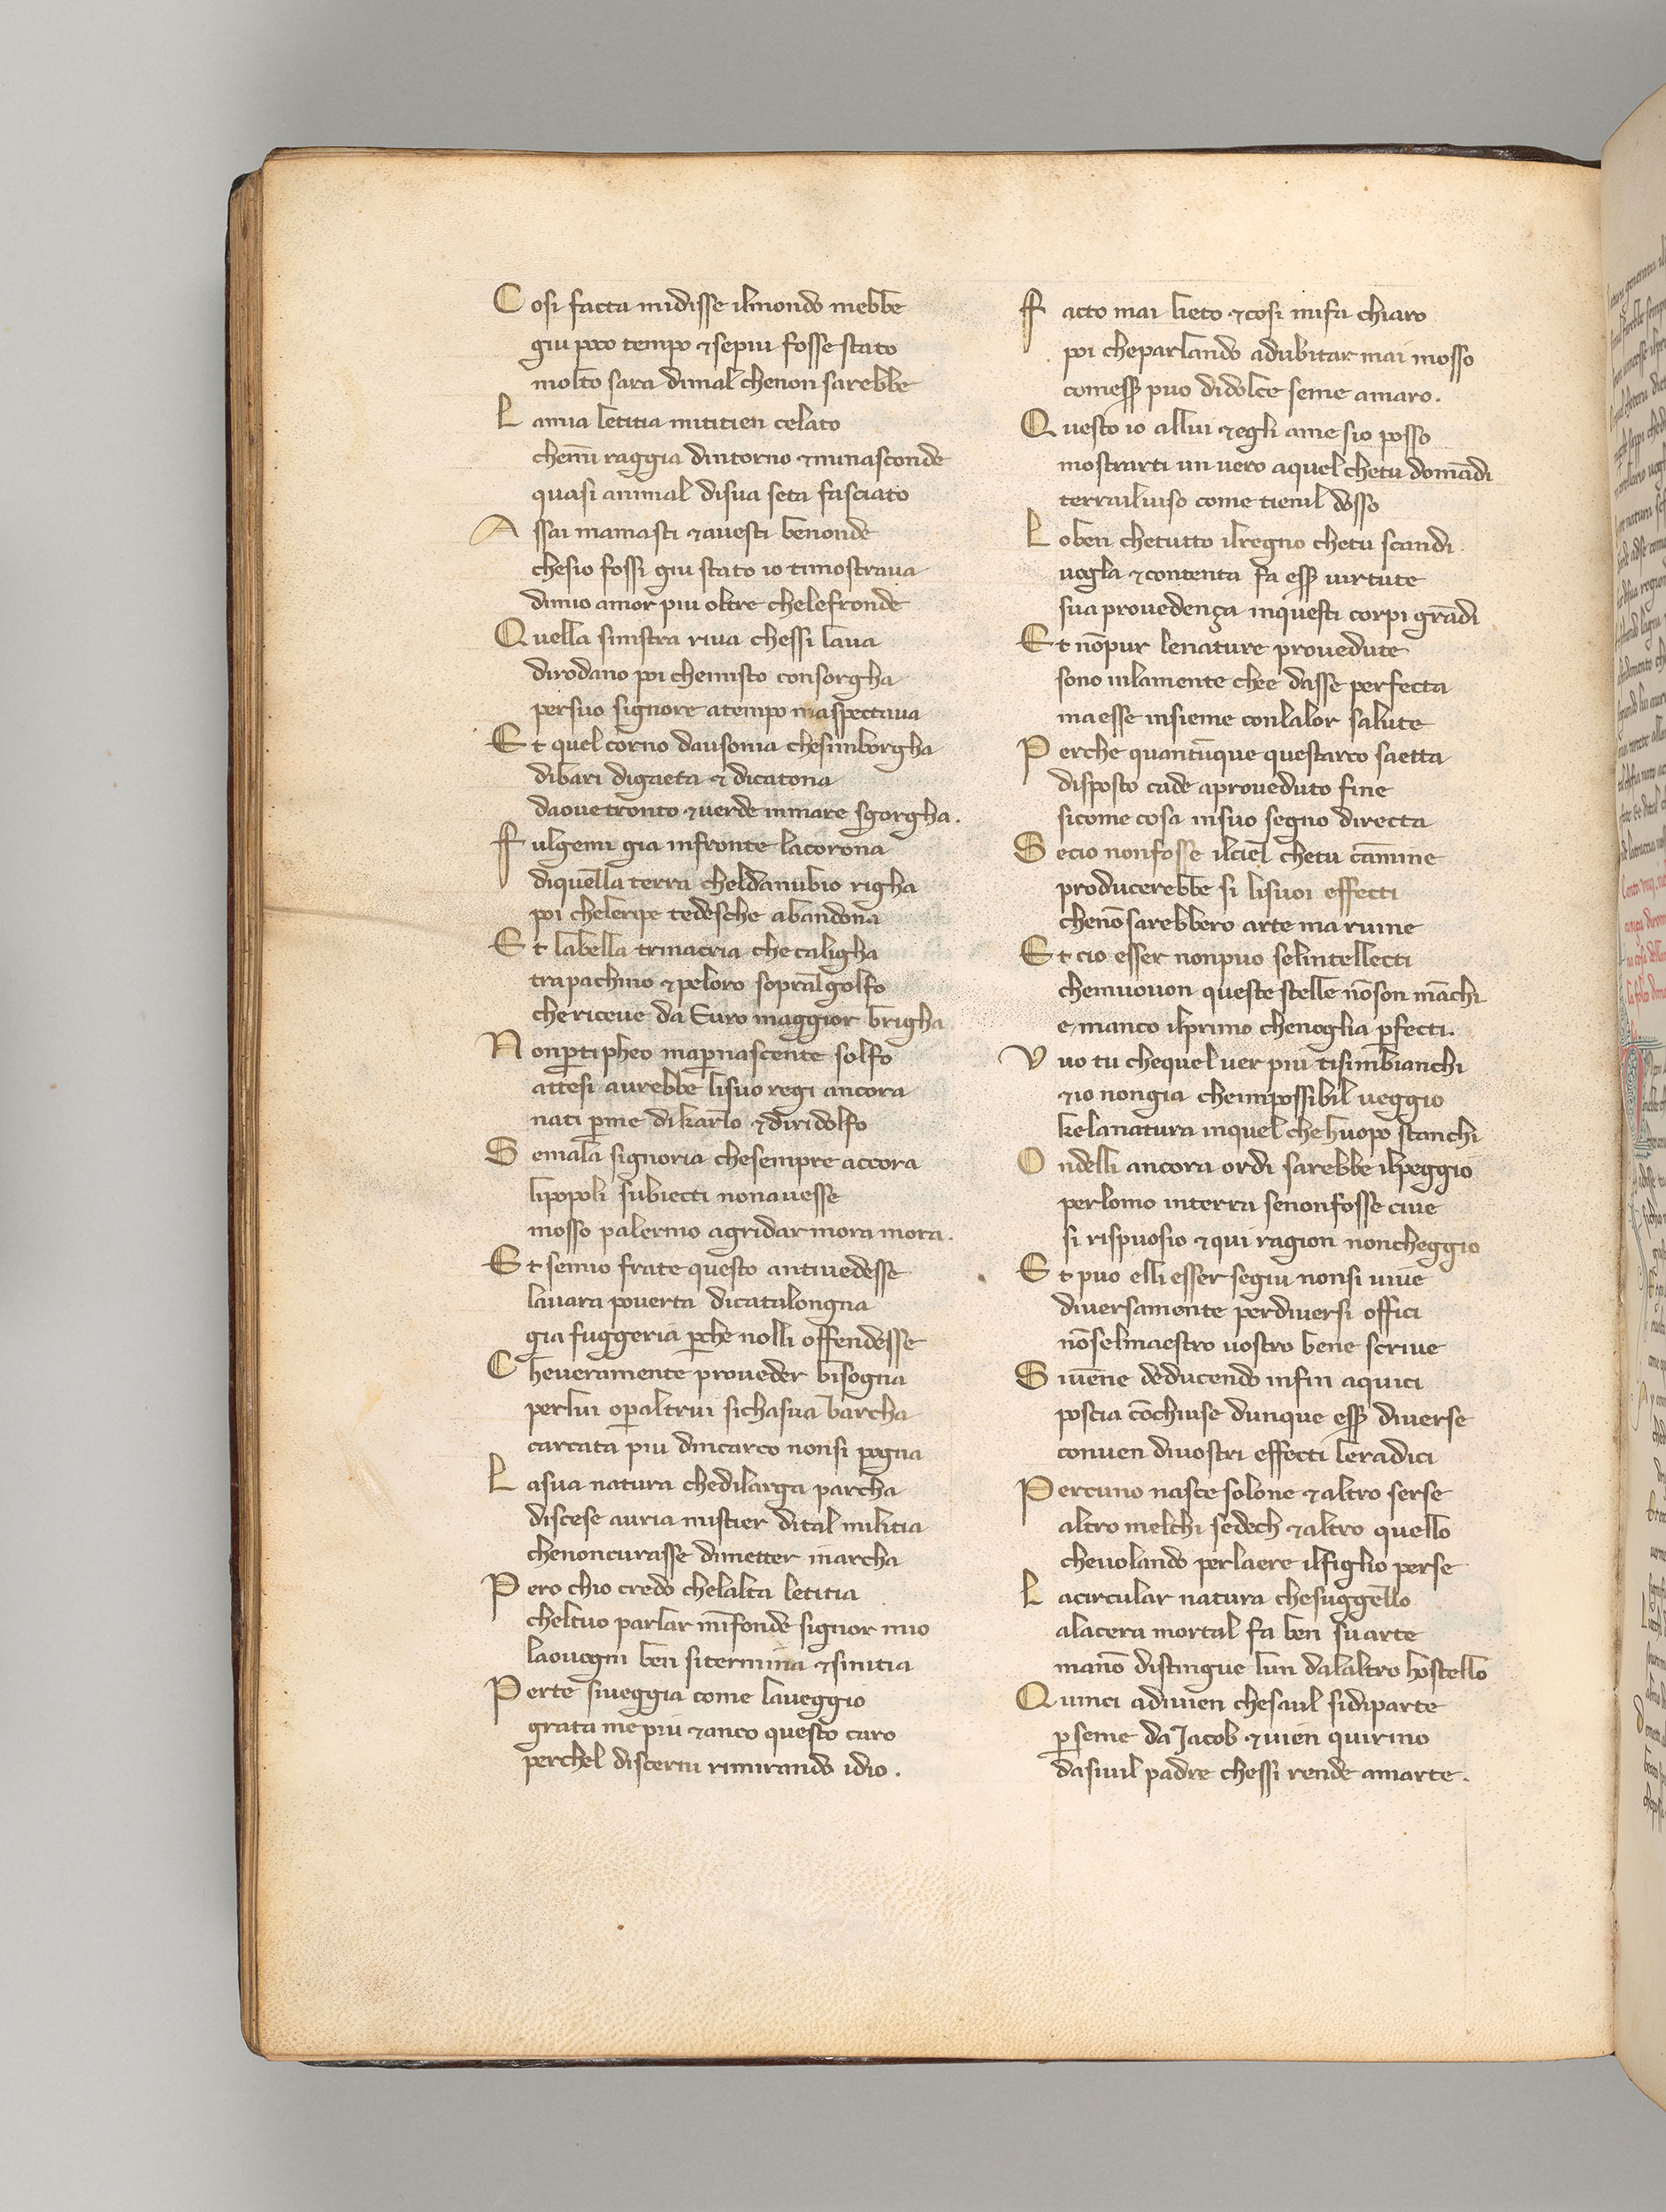 Cosi facta midisse ilmondo mebbe
giu poco tempo ⁊ sepiu fosse stato
molto sara dimal chenon sarebbe
Lamia letitia mititien celato
chemi raggia dintorno ⁊ minasconde
quasi animal disua seta fasciato
Assai mamasti ⁊ avesti benonde
chesio fossi giu stato io timostraua
dimio amor piu oltre chelefronde
Quella sinistra riua chessi laua
dirodano poi chemisto consorgha
persuo signore atempo maspectaua
Et quel corno dausonia chesimborgha
dibari digaeta ⁊ dicatona
daoue tronto ⁊ uerde inmare sgorgha.
Fulgemi gia infronte lacorona
diquella terra cheldanubio righa
poi cheleripe tedesche abandona
Et labella trinacria checaligha
trapachino ⁊ peloro sopralgolfo
chericeue da Euro maggior brigha
Non ꝑ tipheo ma ꝑ nascente solfo
attesi aurebbe lisuo regi ancora
nati ꝑ me di karlo ⁊ diridolfo
Semala signoria chesempre accora
lipopoli subiecti nonauesse
mosso palermo agridar mora mora.
Et semio frate questo antiuedesse
lauara pouerta dicatalongna
gia fuggeria ꝑche nolli offendesse
Cheueramente proueder bisogna
perlui oꝑaltrui sichasua barcha
carcata piu dincarco nonsi pogna
Lasua natura chedilarga parcha
discese auria mistier dital militia
chenoncurasse dimetter inarcha
Pero chio credo chelalta letitia
cheltuo parlar mīfonde signor mio
laouogni ben sitermina ⁊ sinitia
Perte siueggia come laueggio
grata me piu ⁊ anco questo caro
perchel discerni rimirando idio.
Facto mai lieto ⁊ cosi mifa chiaro
poi cheparlando adubitar mai mosso
comeeſꝑ puo didolce seme amaro.
Questo io allui ⁊ egli ame sio posso
mostrarti un uero aquel chetu domādi
terrailuiso come tienil dosso
Loben chetutto ilregno chetu scandi
uogla ⁊ contenta fa eſꝑ uirtute
sua prouedença inquesti corpi grādi
Et nōpur lenature prouedute
sono inlamente chee dasse perfecta
maesse insieme conlalor salute
Perche quantūque questarco saetta
disposto cade aproueduto fine
sicome cosa insuo segno directa
Secio nonfosse ilciel chetu camine
producerebbe si lisuoi effecti
chenōsarebbero arte ma ruine
Et cio esser nonpuo selintellecti
chemuouon queste stelle nōson māchi
e manco ilprimo chenoglia ꝑfecti.
Vuo tu chequel uer piu tisimbianchi
⁊ io nongia cheimpossibil ueggio
kelanatura inquel che huopo stanchi
Ondelli ancora ordi sarebbe ilpeggio
perlomo interra senonfosse ciue
si rispuosio ⁊ qui ragion noncheggio
Et puo elli esser segiu nonsi uiue
diuersamente perdiuersi offici
nōselmaestro uostro bene scriue
Siuēne deducendo infin aquici
poscia cōchiuse dunque eſꝑ diuerse
conuen diuostri effecti leradici
Percuno nasce solone ⁊ altro serse
altro melchi sedech ⁊ altro quello
cheuolando perlaere ilfiglio perse
Lacircular natura chesuggello
alacera mortal fa ben suarte
manō distingue lun dalaltro hostello
Quinci adiuien chesaul sidiparte
ꝑ seme da Jacob ⁊ uien quirino
dasiuil padre chessi rende amarte.